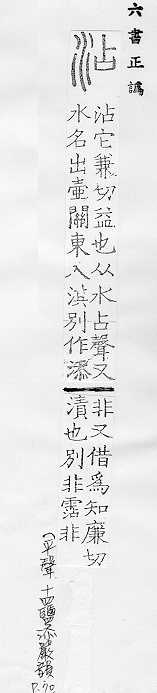 六書正譌
沾
沾它兼切益也从水占聲又
水名出壺關東入淇別作添
非又借爲知廉切
漬也別非霑非
(平聲 十四鹽添嚴韻
P.70